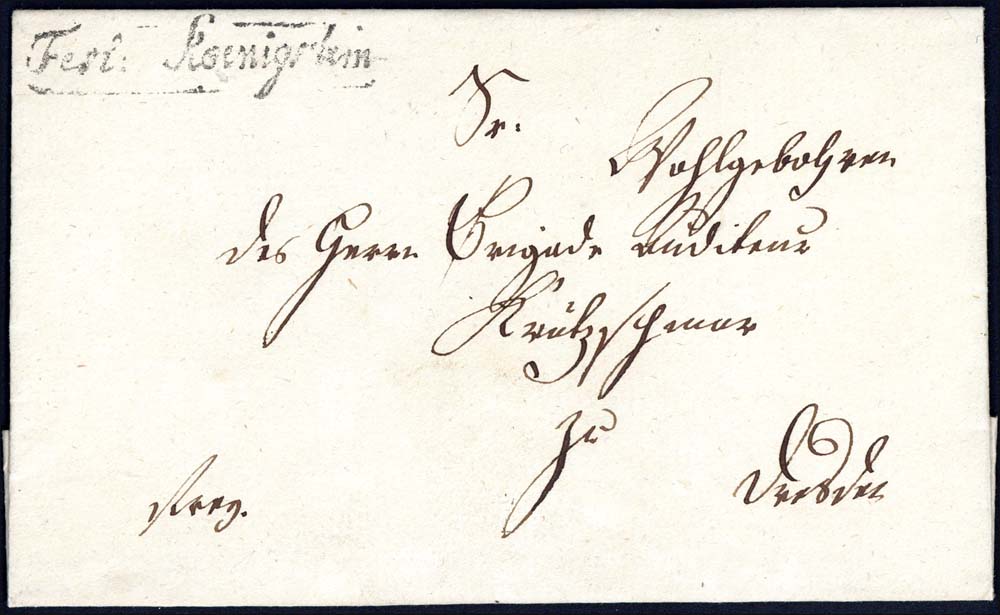 Fest: Koenigstein
Sr.
Wohlgebohren
des Herrn Brigade Auditeur
Krätzschmar
zu
Dresden
frey.